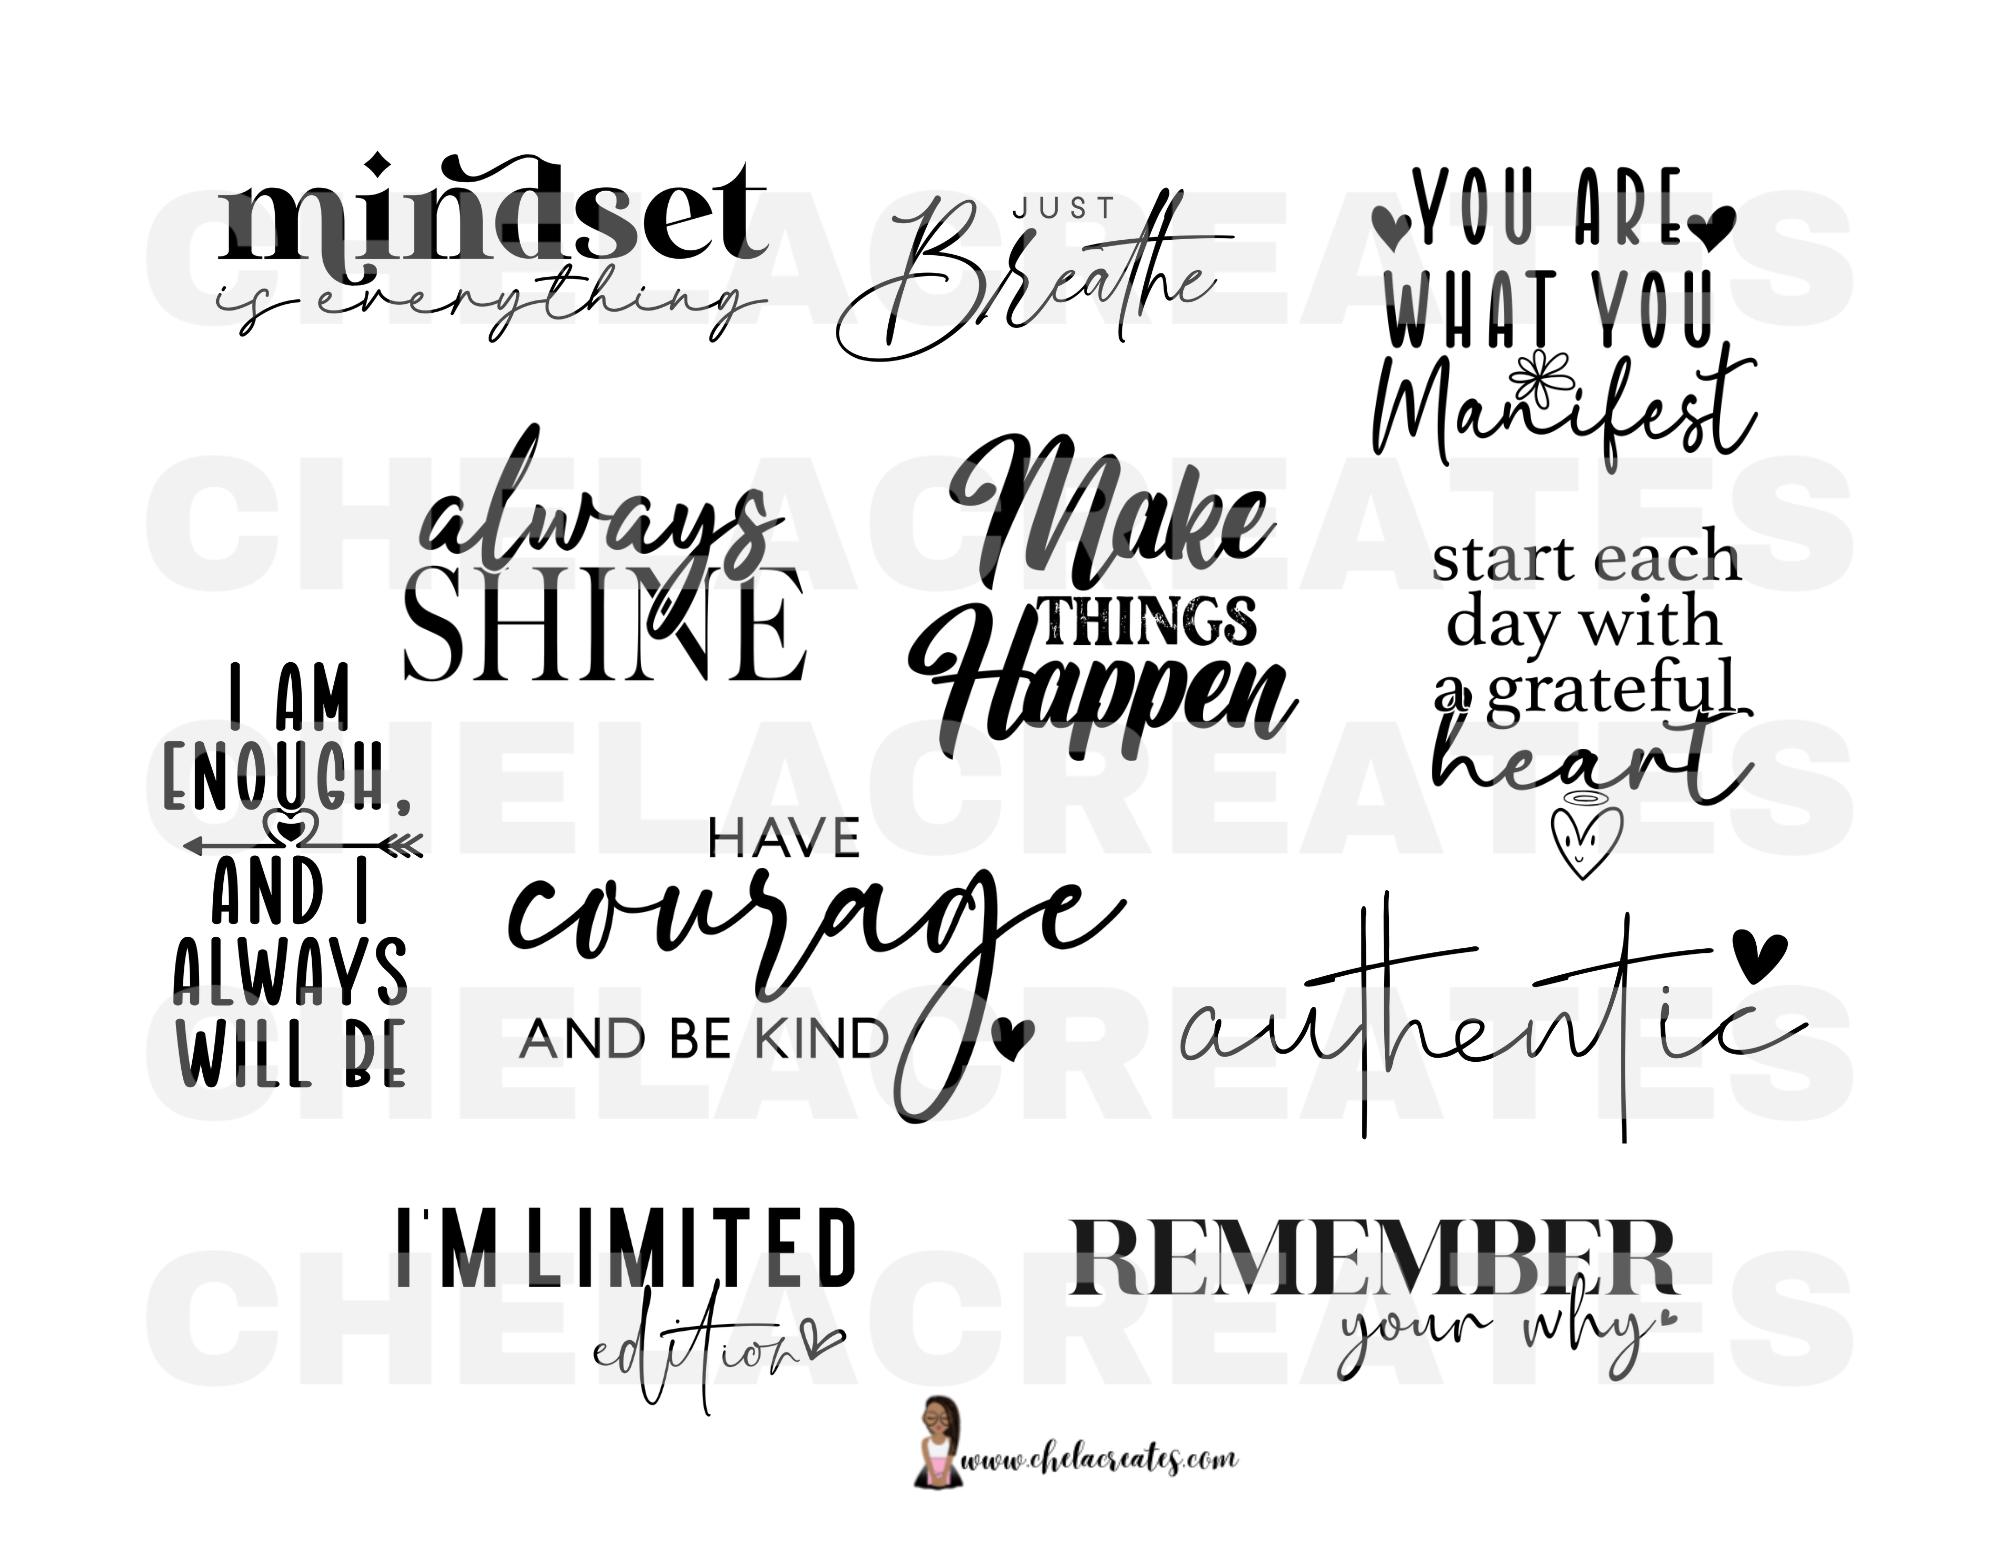 mindset
is everything
JUST
Breathe
YOU ARE
WHAT YOU
Manifest
always
SHINE
Make
THINGS
Happen
start each
day with
a grateful
heart
I AM
ENOUGH,
AND I
ALWAYS
WILL BE
HAVE
courage
AND BE KIND
authentic
I'M LIMITED
edition
REMEMBER
your why
www.chelacreates.com
CHELACREATES
CHELACREATES
CHELACREATES
CHELACREATES
CHELACREATES